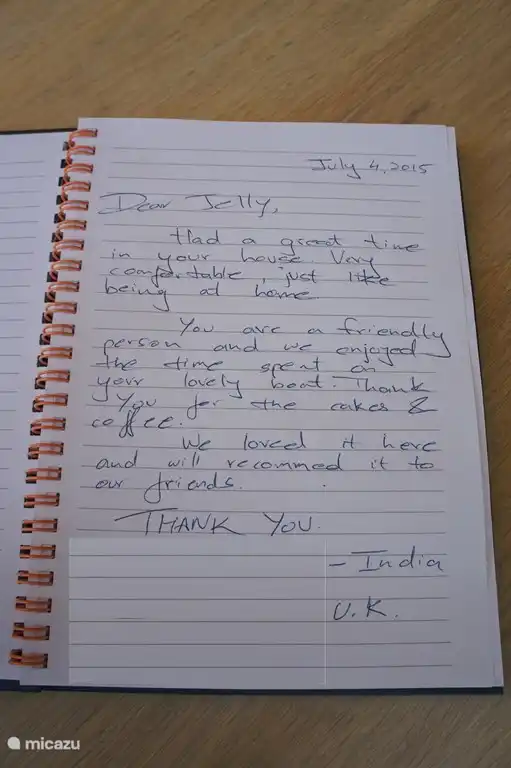 July 4, 2015
Dear Jelly,
Had a great time
in your house. Very
comfortable, just like
being at home
You are a friendly
person and we enjoyed
the time spent on
your lovely boat. Thank
You for the cakes &
coffee.
We loved it here
and will recommed it to
our friends.
THANK YOU.
- India
U.K.
micazu